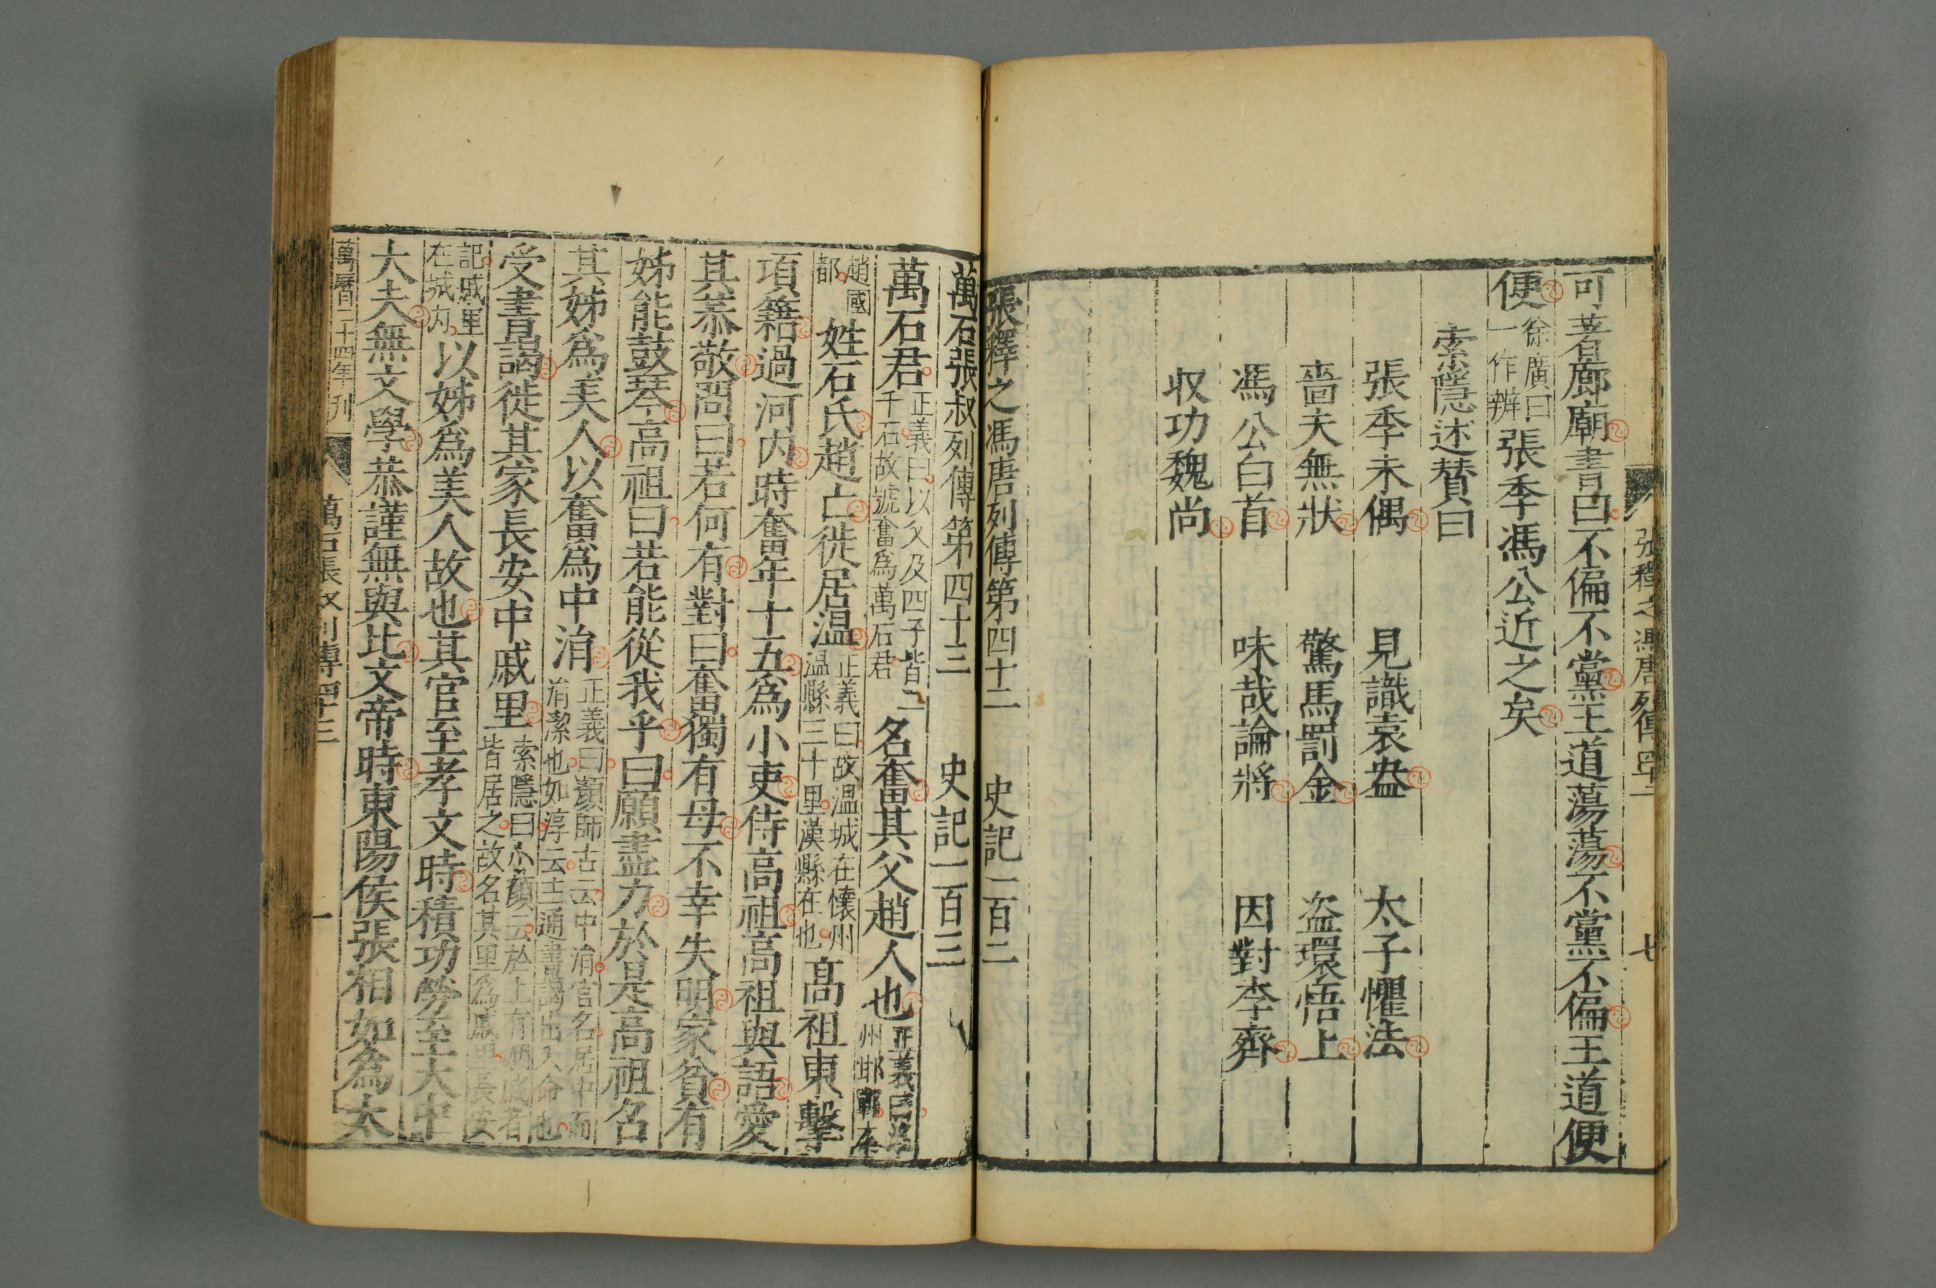 張釋之馮唐列傳四十二
七
可著廊廟書曰不偏不黨王道蕩蕩不黨不偏王道便
便徐廣曰一作辨張季馮公近之矣
索隱述贊曰
張季未偶 見識袁盎 太子懼法
嗇夫無狀 驚馬罰金 盜環悟上
馮公白首 味哉論將 因對李齊
収功魏尚
張釋之馮唐列傳第四十二 史記一百二
萬石張叔列傳第四十三 史記一百三
萬石君正義曰以父及四子皆二千石故號奮爲萬石君名奮其父趙人也正義曰洺州邯鄲本
趙國都姓石氏趙亡徙居温正義曰故温城在懷州温縣三十里漢縣在也高祖東擊
項籍過河內時奮年十五爲小吏侍高祖高祖與語愛
其恭敬問曰若何有對曰奮獨有母不幸失明家貧有
姊能鼓琴高祖曰若能從我乎曰願盡力於是高祖召
其姊爲美人以奮爲中涓正義曰顏師古云中涓官名居中而涓潔也如淳云主通書謁出入命也
受書謁徙其家長安中戚里索隱曰小顏云於上有姻戚者皆居之故名其里爲戚里長安
記戚里在城內以姊爲美人故也其官至孝文時積功勞至大中
大夫無文學恭謹無與比文帝時東陽侯張相如爲太
萬曆二十四年刊
萬石張叔列傳四十三
一